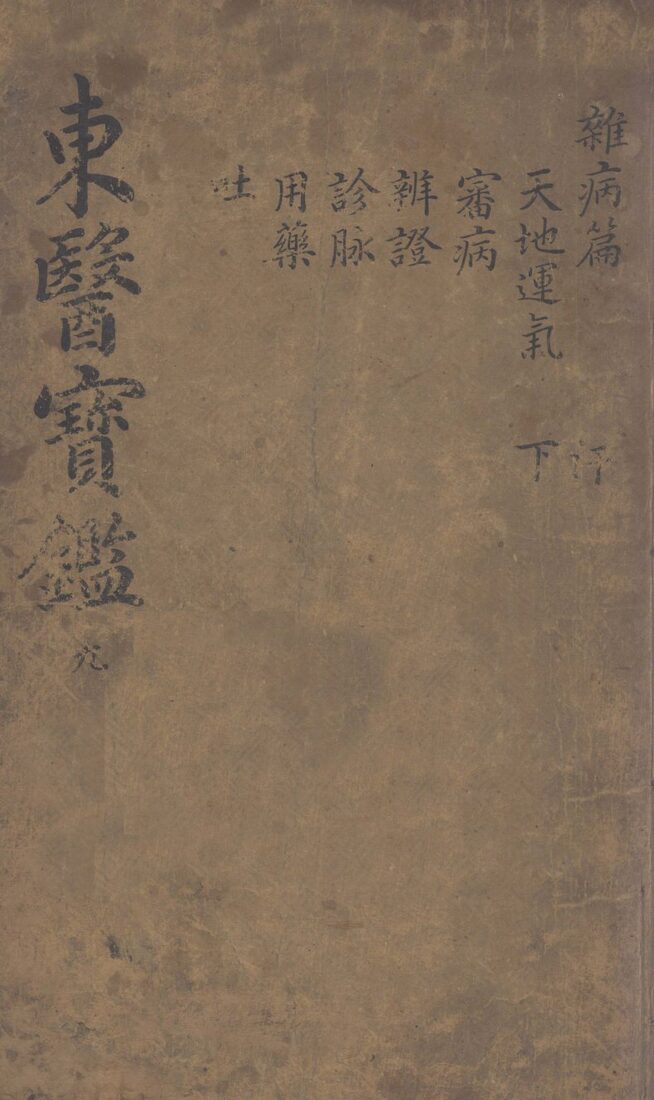 雜病篇
汗
天地運氣
下
審病
辨證
診脉
用藥
吐
東醫寶鑑
九